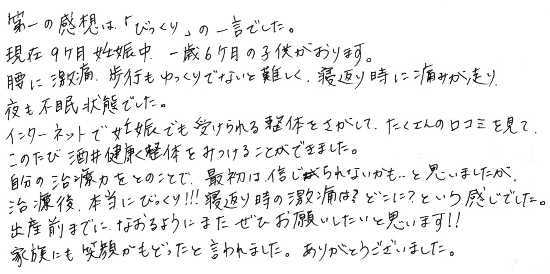 第一の感想は「びっくり」の一言でした。
現在9ヶ月妊娠中、一歳6ヶ月の子供がおります。
腰に激痛、歩行もゆっくりでないと難しく、寝返り時に痛みが走り、
夜も不眠状態でした。
インターネットで妊娠でも受けられる整体をさがして、たくさんの口コミを見て、
このたび酒井健康整体をみつけることができました。
自分の治癒力をとのことで、最初は信じられないかも…と思いましたが、
治療後、本当にびっくり!!!寝返り時の激痛は?どこに?という感じでした。
出産前までに、なおるようにまたぜひお願いしたいと思います!!
家族にも笑顔がもどったと言われました。ありがとうございました。